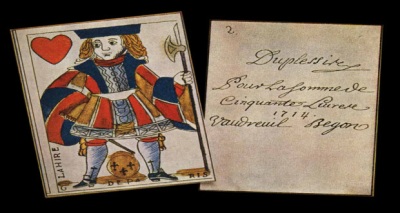 LAHIRE
DE PA RIS
2.
Duplessis
Pour La Somme de
Cinquante Livres
1714
Vaudreuil Begon